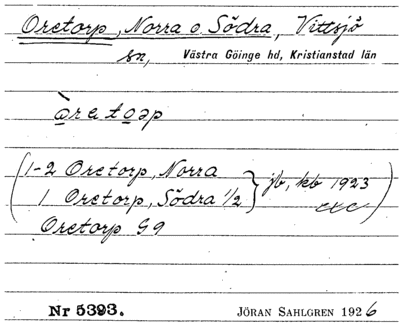 Oretorp, Norra o. Södra, Vittsjö
sn, Västra Göinge hd, Kristianstad län
òretoəp
(1-2 Oretorp, Norra
1 Oretorp, Södra 1/2 } jb, kb 1923)
Oretorp G9
Nr 5393. JÖRAN SAHLGREN 1926